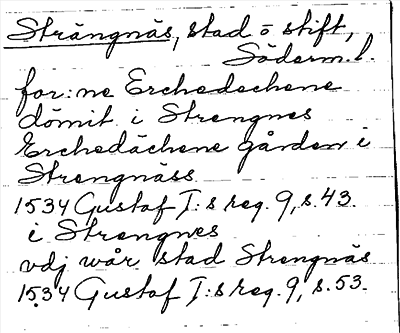 Strängnäs, stad o stift,
Söderm.l.
for:ne Erchedechene
dömit i Strengnes
Erchedächene gården i
Strengnäss
1534 Gustaf I:s reg. 9, s. 43.
i Strengnes
vdj wår stad Strengnäs
1534 Gustaf I:s reg. 9, s. 53.